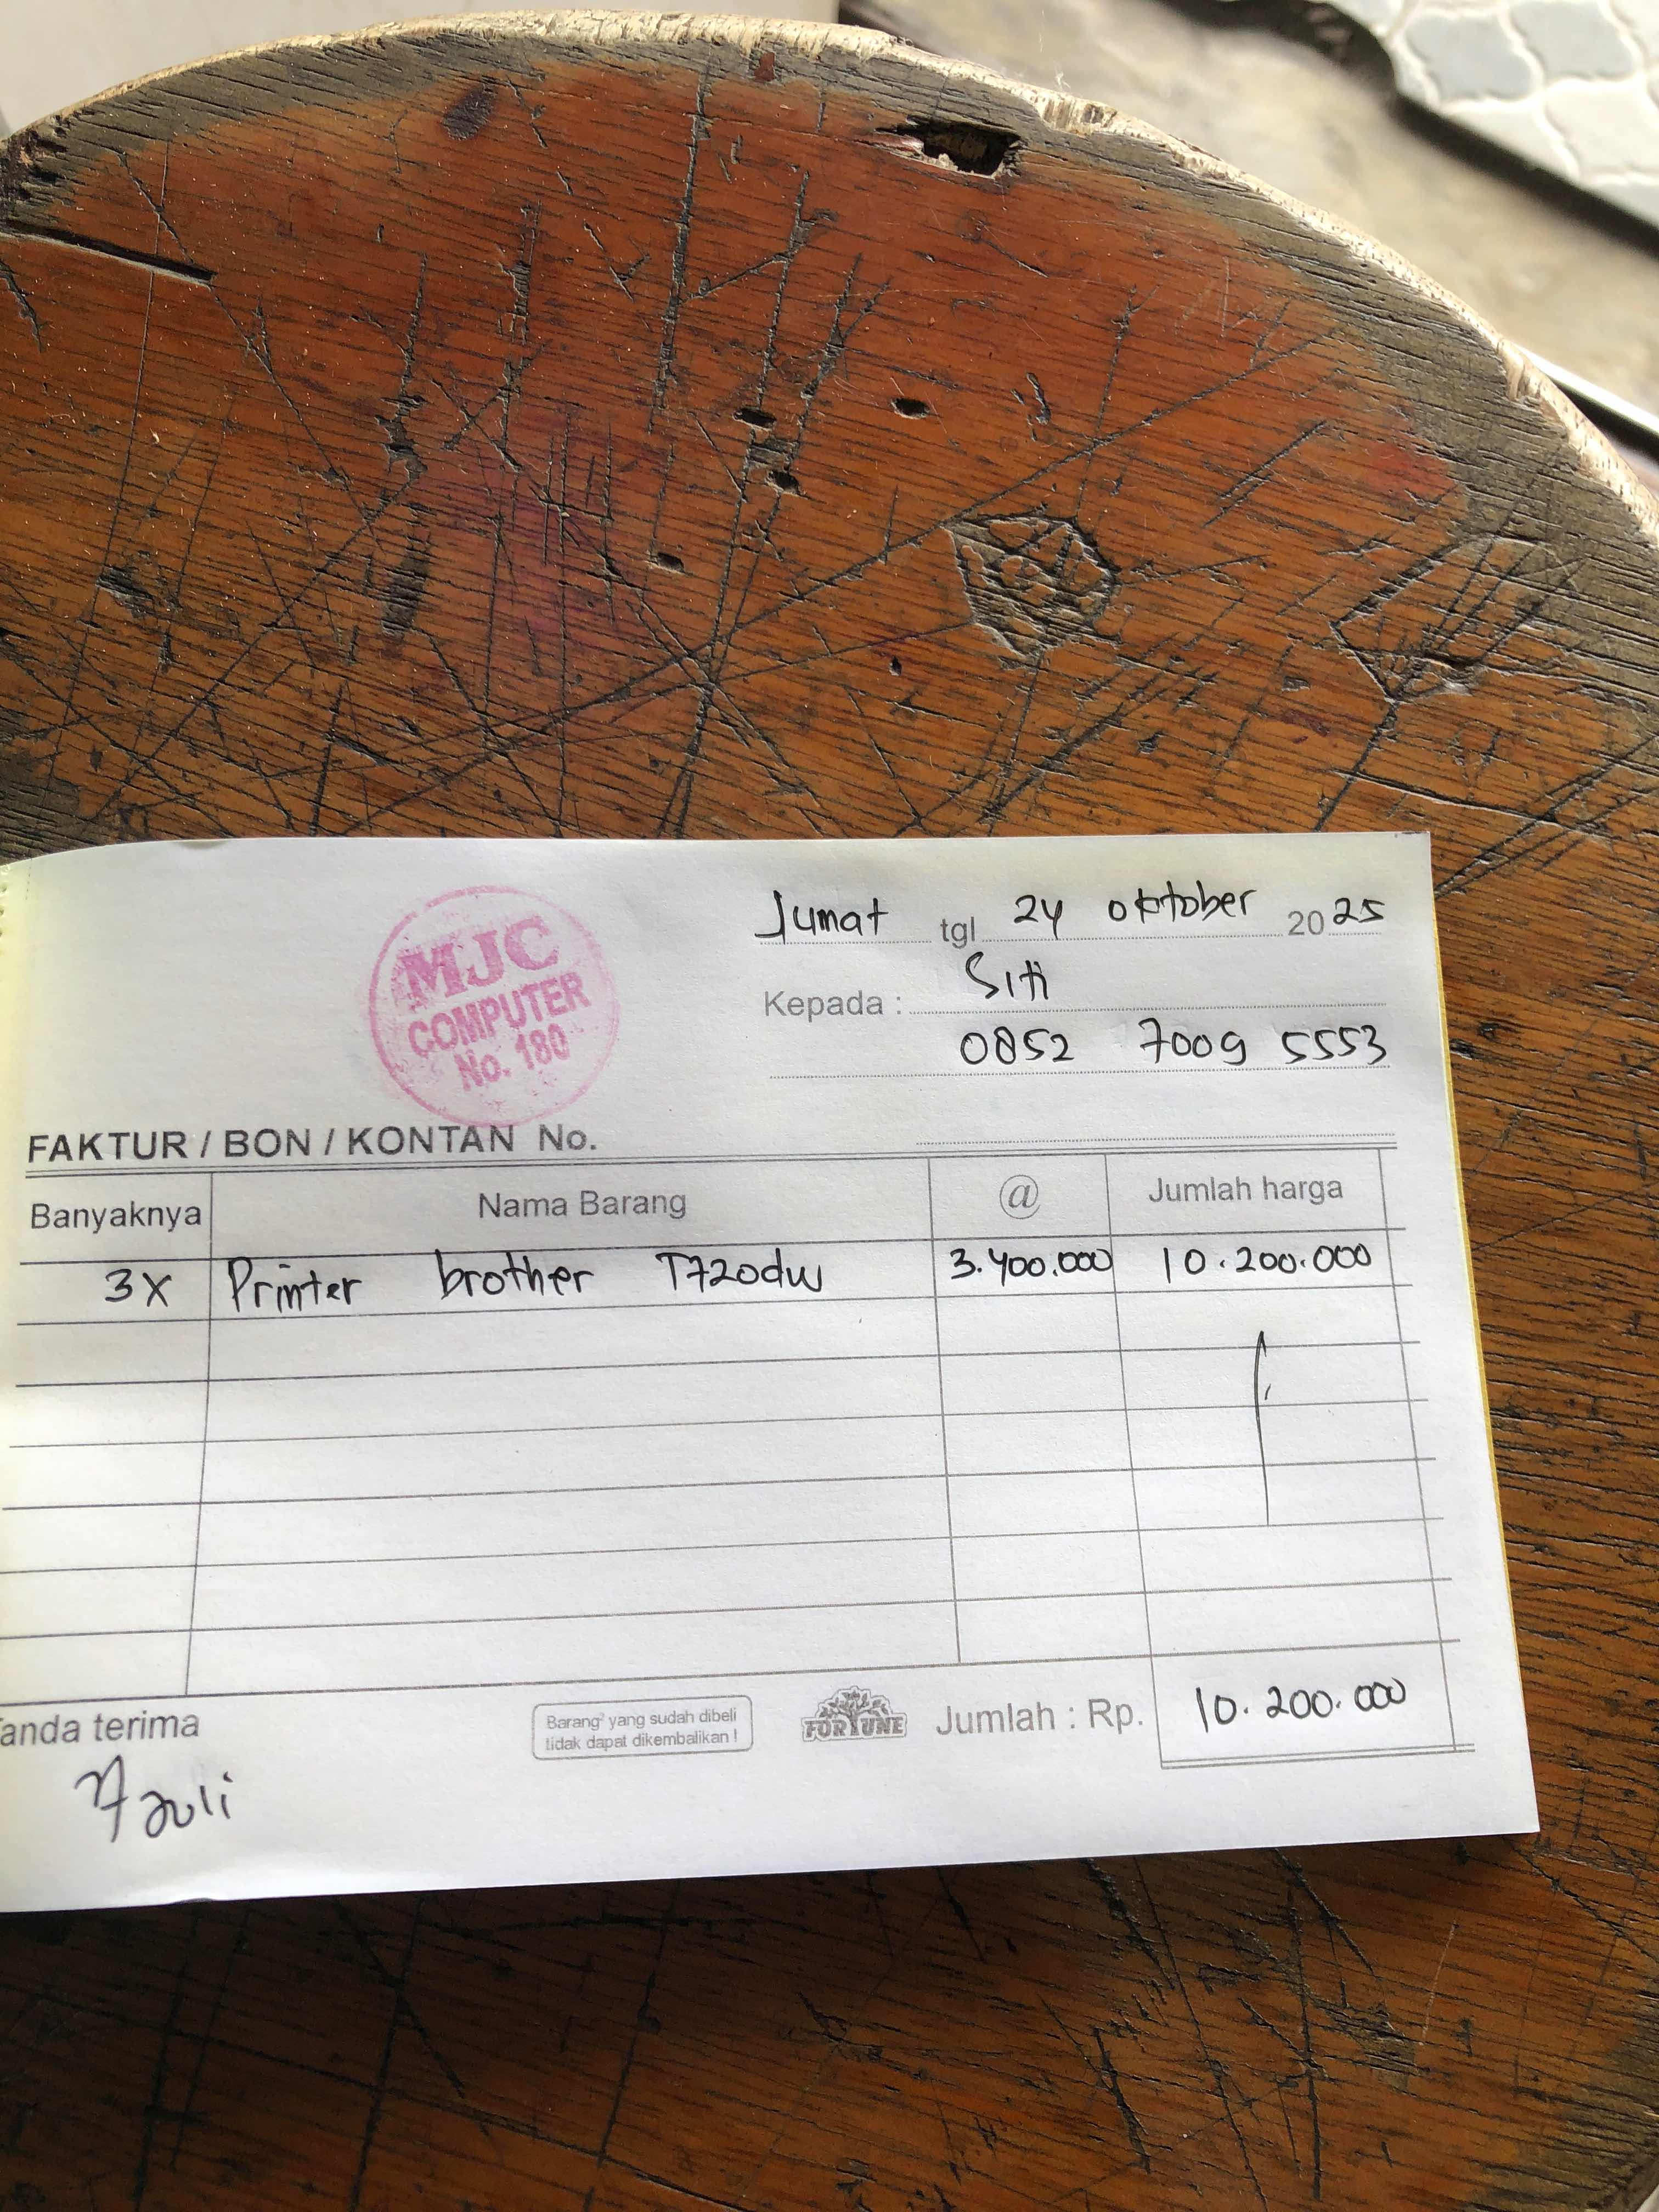 MJC
COMPUTER
No. 180
Jumat tgl 24 oktober 2025
Kepada : Siti
0852 7009 5553
FAKTUR / BON / KONTAN No.
Banyaknya Nama Barang @ Jumlah harga
3x Printer brother T720dw 3.400.000 10.200.000
anda terima
Barang² yang sudah dibeli
tidak dapat dikembalikan !
FORTUNE
Jumlah : Rp. 10.200.000